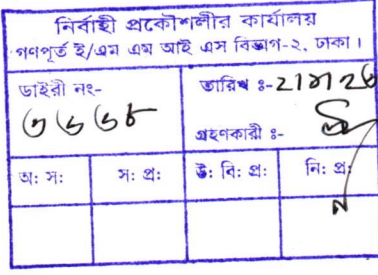 নির্বাহী প্রকৌশলীর কার্যালয়
গণপূর্ত ই/এম এম আই এস বিভাগ-২, ঢাকা।
ডাইরী নং-
তারিখ ঃ-
৩৬৬৮
গ্রহণকারী ঃ-
অ: স:
স: প্র:
উ: বি: প্র:
নি: প্র: